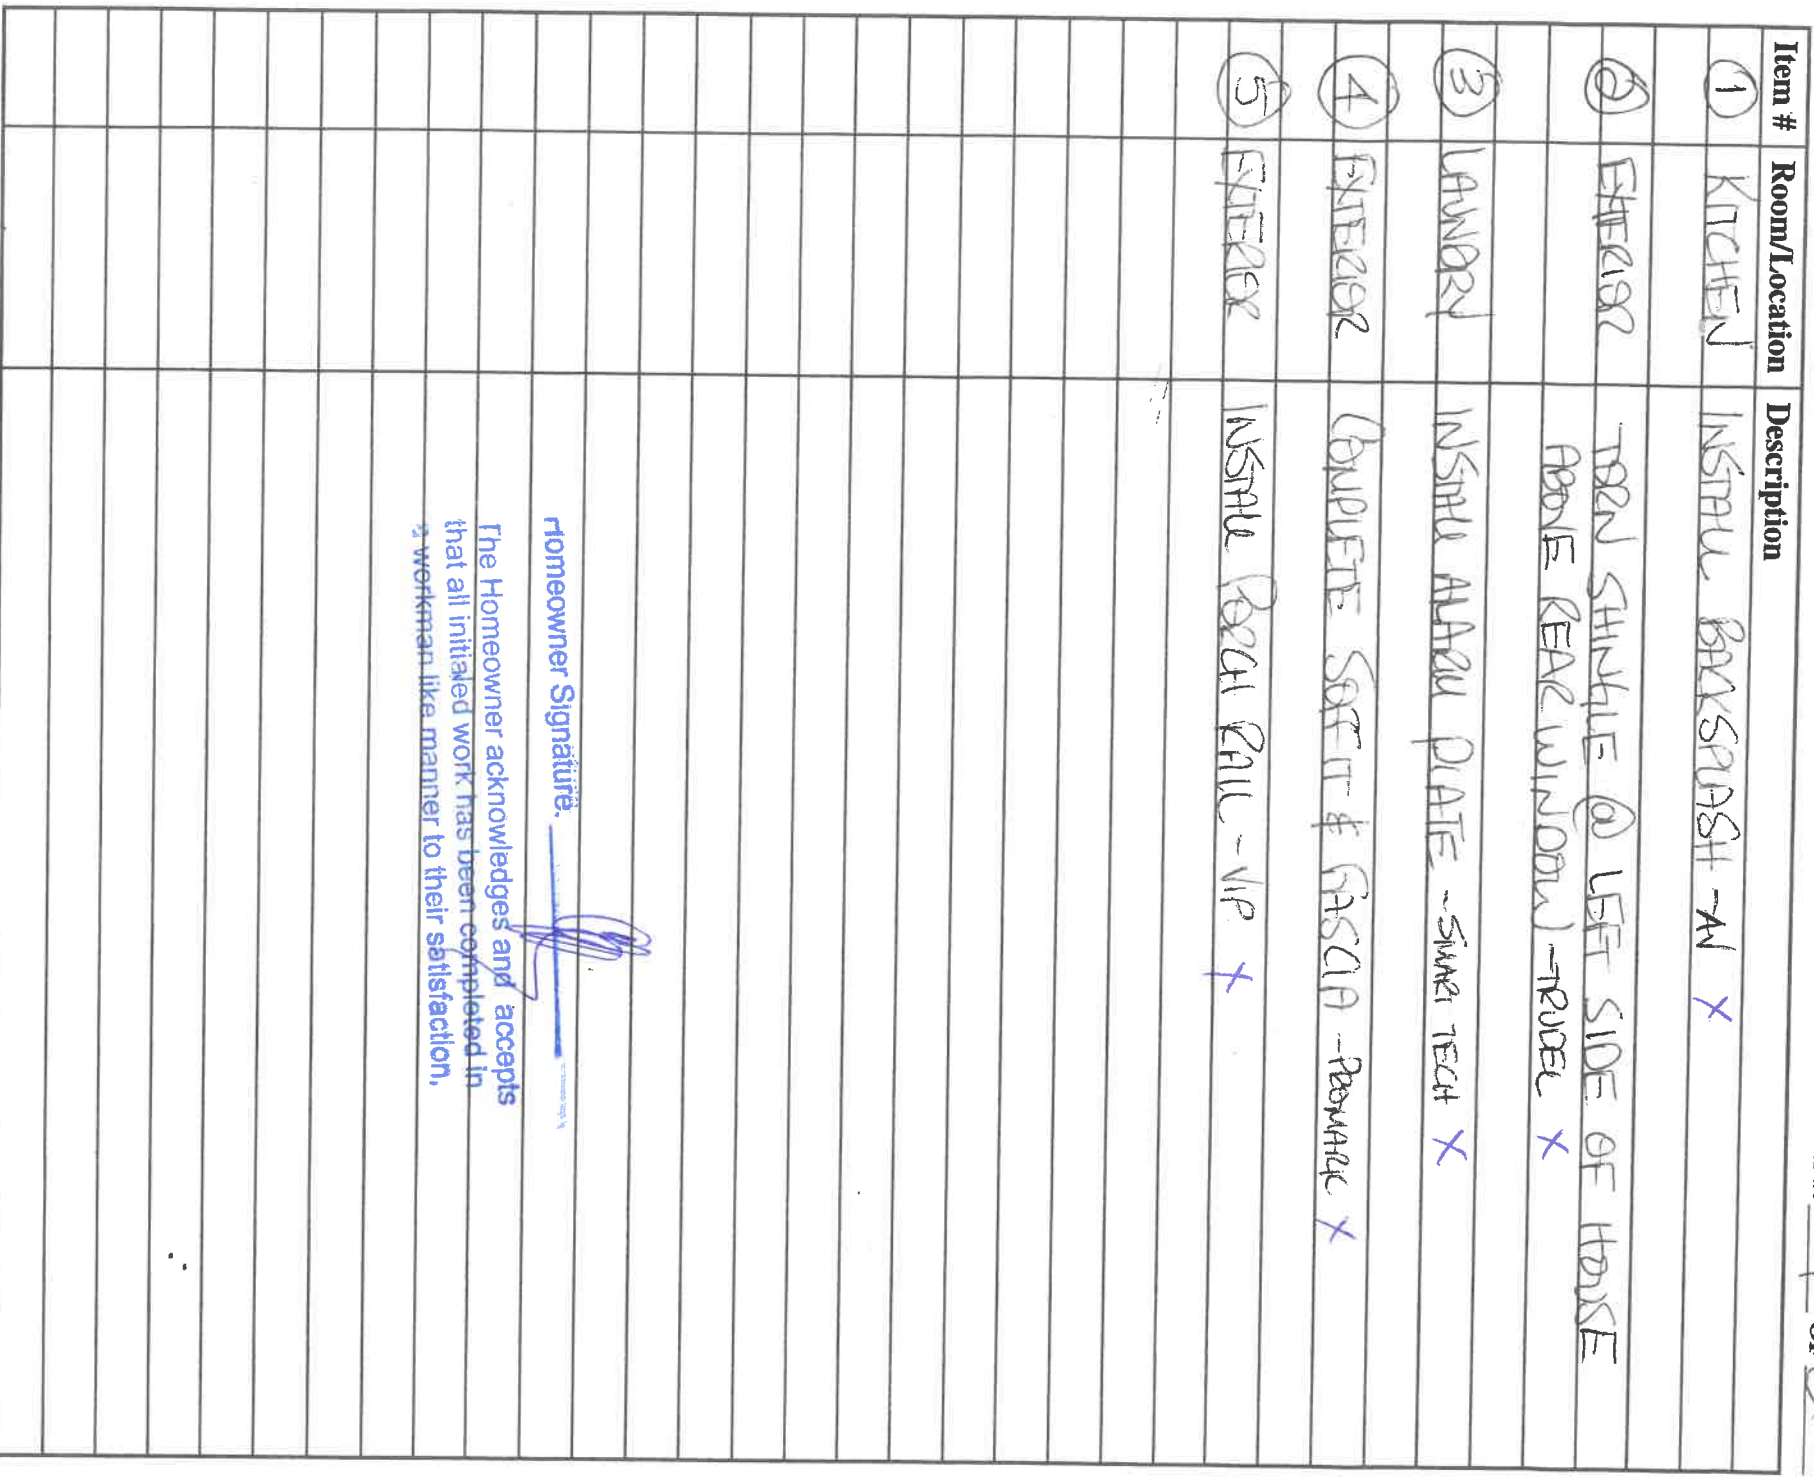 OF 2
Item # Room/Location Description
1 KITCHEN INSTALL BACKSPLASH - AN X
2 EXTERIOR TORN SHINGLE @ LEFT SIDE OF HOUSE
ABOVE REAR WINDOW - TRUDEL X
3 LAUNDRY INSTALL ALARM PLATE - SMART TECH X
4 EXTERIOR COMPLETE SOFFIT & FASCIA - X
5 EXTERIOR INSTALL PORCH RAIL - VIP X
Homeowner Signature.
The Homeowner acknowledges and accepts
that all initialed work has been completed in
a workman like manner to their satisfaction.